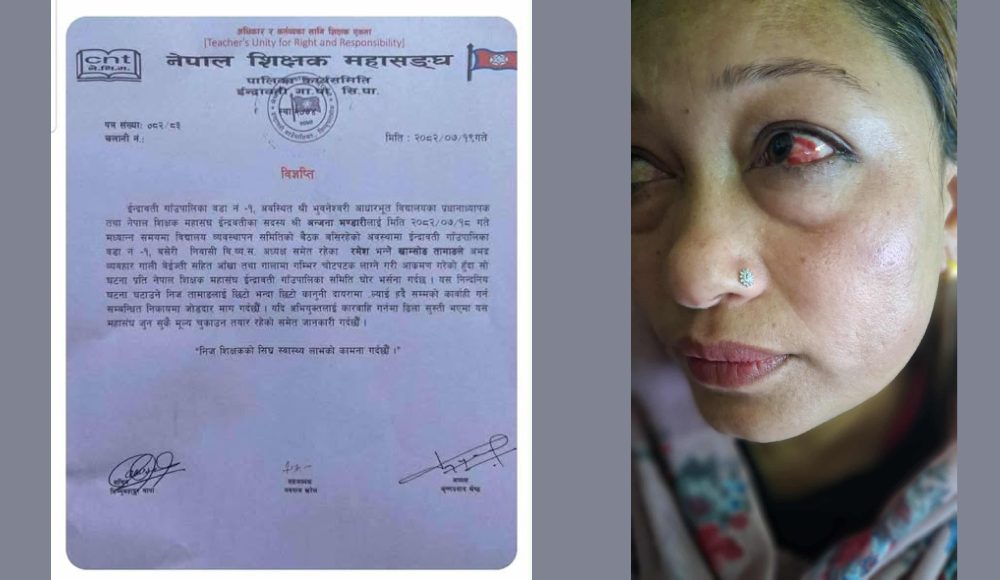 अधिकार र कर्तव्यका लागि शिक्षक एकता
[Teacher's Unity for Right and Responsibility]
cnt
ने.शि.म.
नेपाल शिक्षक महासङ्घ
पालिका कार्यसमिति
ईन्द्रावती गा.पा. सि.पा.
पत्र संख्या: ७८२/८३
चलानी नं.:
मिति : २०८२/०७/१९गते
विज्ञप्ति
ईन्द्रावती गाउँपालिका वडा नं -१, अवस्थित श्री भुवनेश्वरी आधारभूत विद्यालयका प्रधानाध्यापक
तथा नेपाल शिक्षक महासंघ ईन्द्रावतीका सदस्य श्री अन्जना भण्डारीलाई मिति २०८२/०७/१८ गते
मध्यान्न समयमा विद्यालय व्यवस्थापन समितिको बैठक बसिरहेको अवस्थामा ईन्द्रावती गाउँपालिका
वडा नं -१, बसेरी निवासी वि.व्य.स. अध्यक्ष समेत रहेका रमेश भन्ने खाम्सोङ तामाङले अभद्र
व्यवहार गाली बेईज्ती सहित आँखा तथा गालामा गम्भिर चोटपटक लाग्ने गरी आक्रमण गरेको हुँदा सो
घटना प्रति नेपाल शिक्षक महासंघ ईन्द्रावती गाउँपालिका समिति घोर भर्त्सना गर्दछ । यस निन्दनिय
घटना घटाउने निज तामाङलाई छिटो भन्दा छिटो कानुनी दायरामा ल्याई हदै सम्मको कार्वाही गर्न
सम्बन्धित निकायमा जोडदार माग गर्दछौं । यदि अभियुक्तलाई कारवाहि गर्नमा ढिला सुस्ती भएमा यस
महासंघ जुन सुकै मूल्य चुकाउन तयार रहेको समेत जानकारी गर्दछौं ।
"निज शिक्षकको सिघ्र स्वास्थ्य लाभको कामना गर्दछौं ।"
सचिव
अध्यक्ष